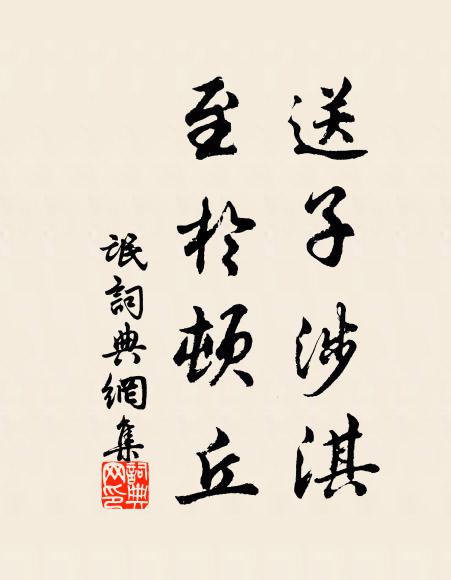 送子涉淇
至於頓丘
氓詞典網集
詞典網印